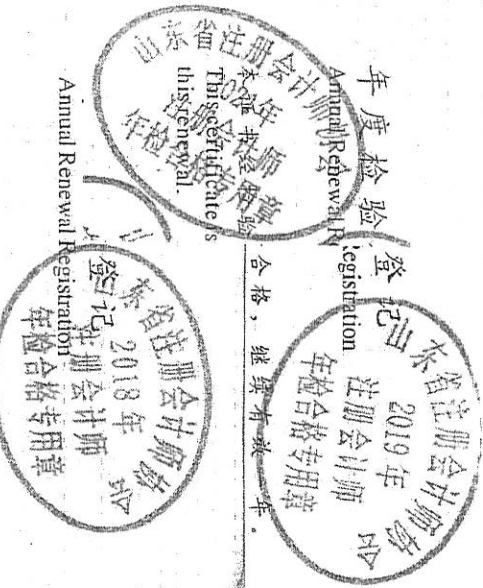 年度检验登记
Annual Renewal Registration
本证书经检验合格，继续有效一年。
This certificate is
this renewal.
山东省注册会计师协会
年
注册会计师
年检合格专用章
山东省注册会计师协会
2019年
注册会计师
年检合格专用章
登记
Annual Renewal Registration
东省注册会计师协会
2018年
注册会计师
年检合格专用章